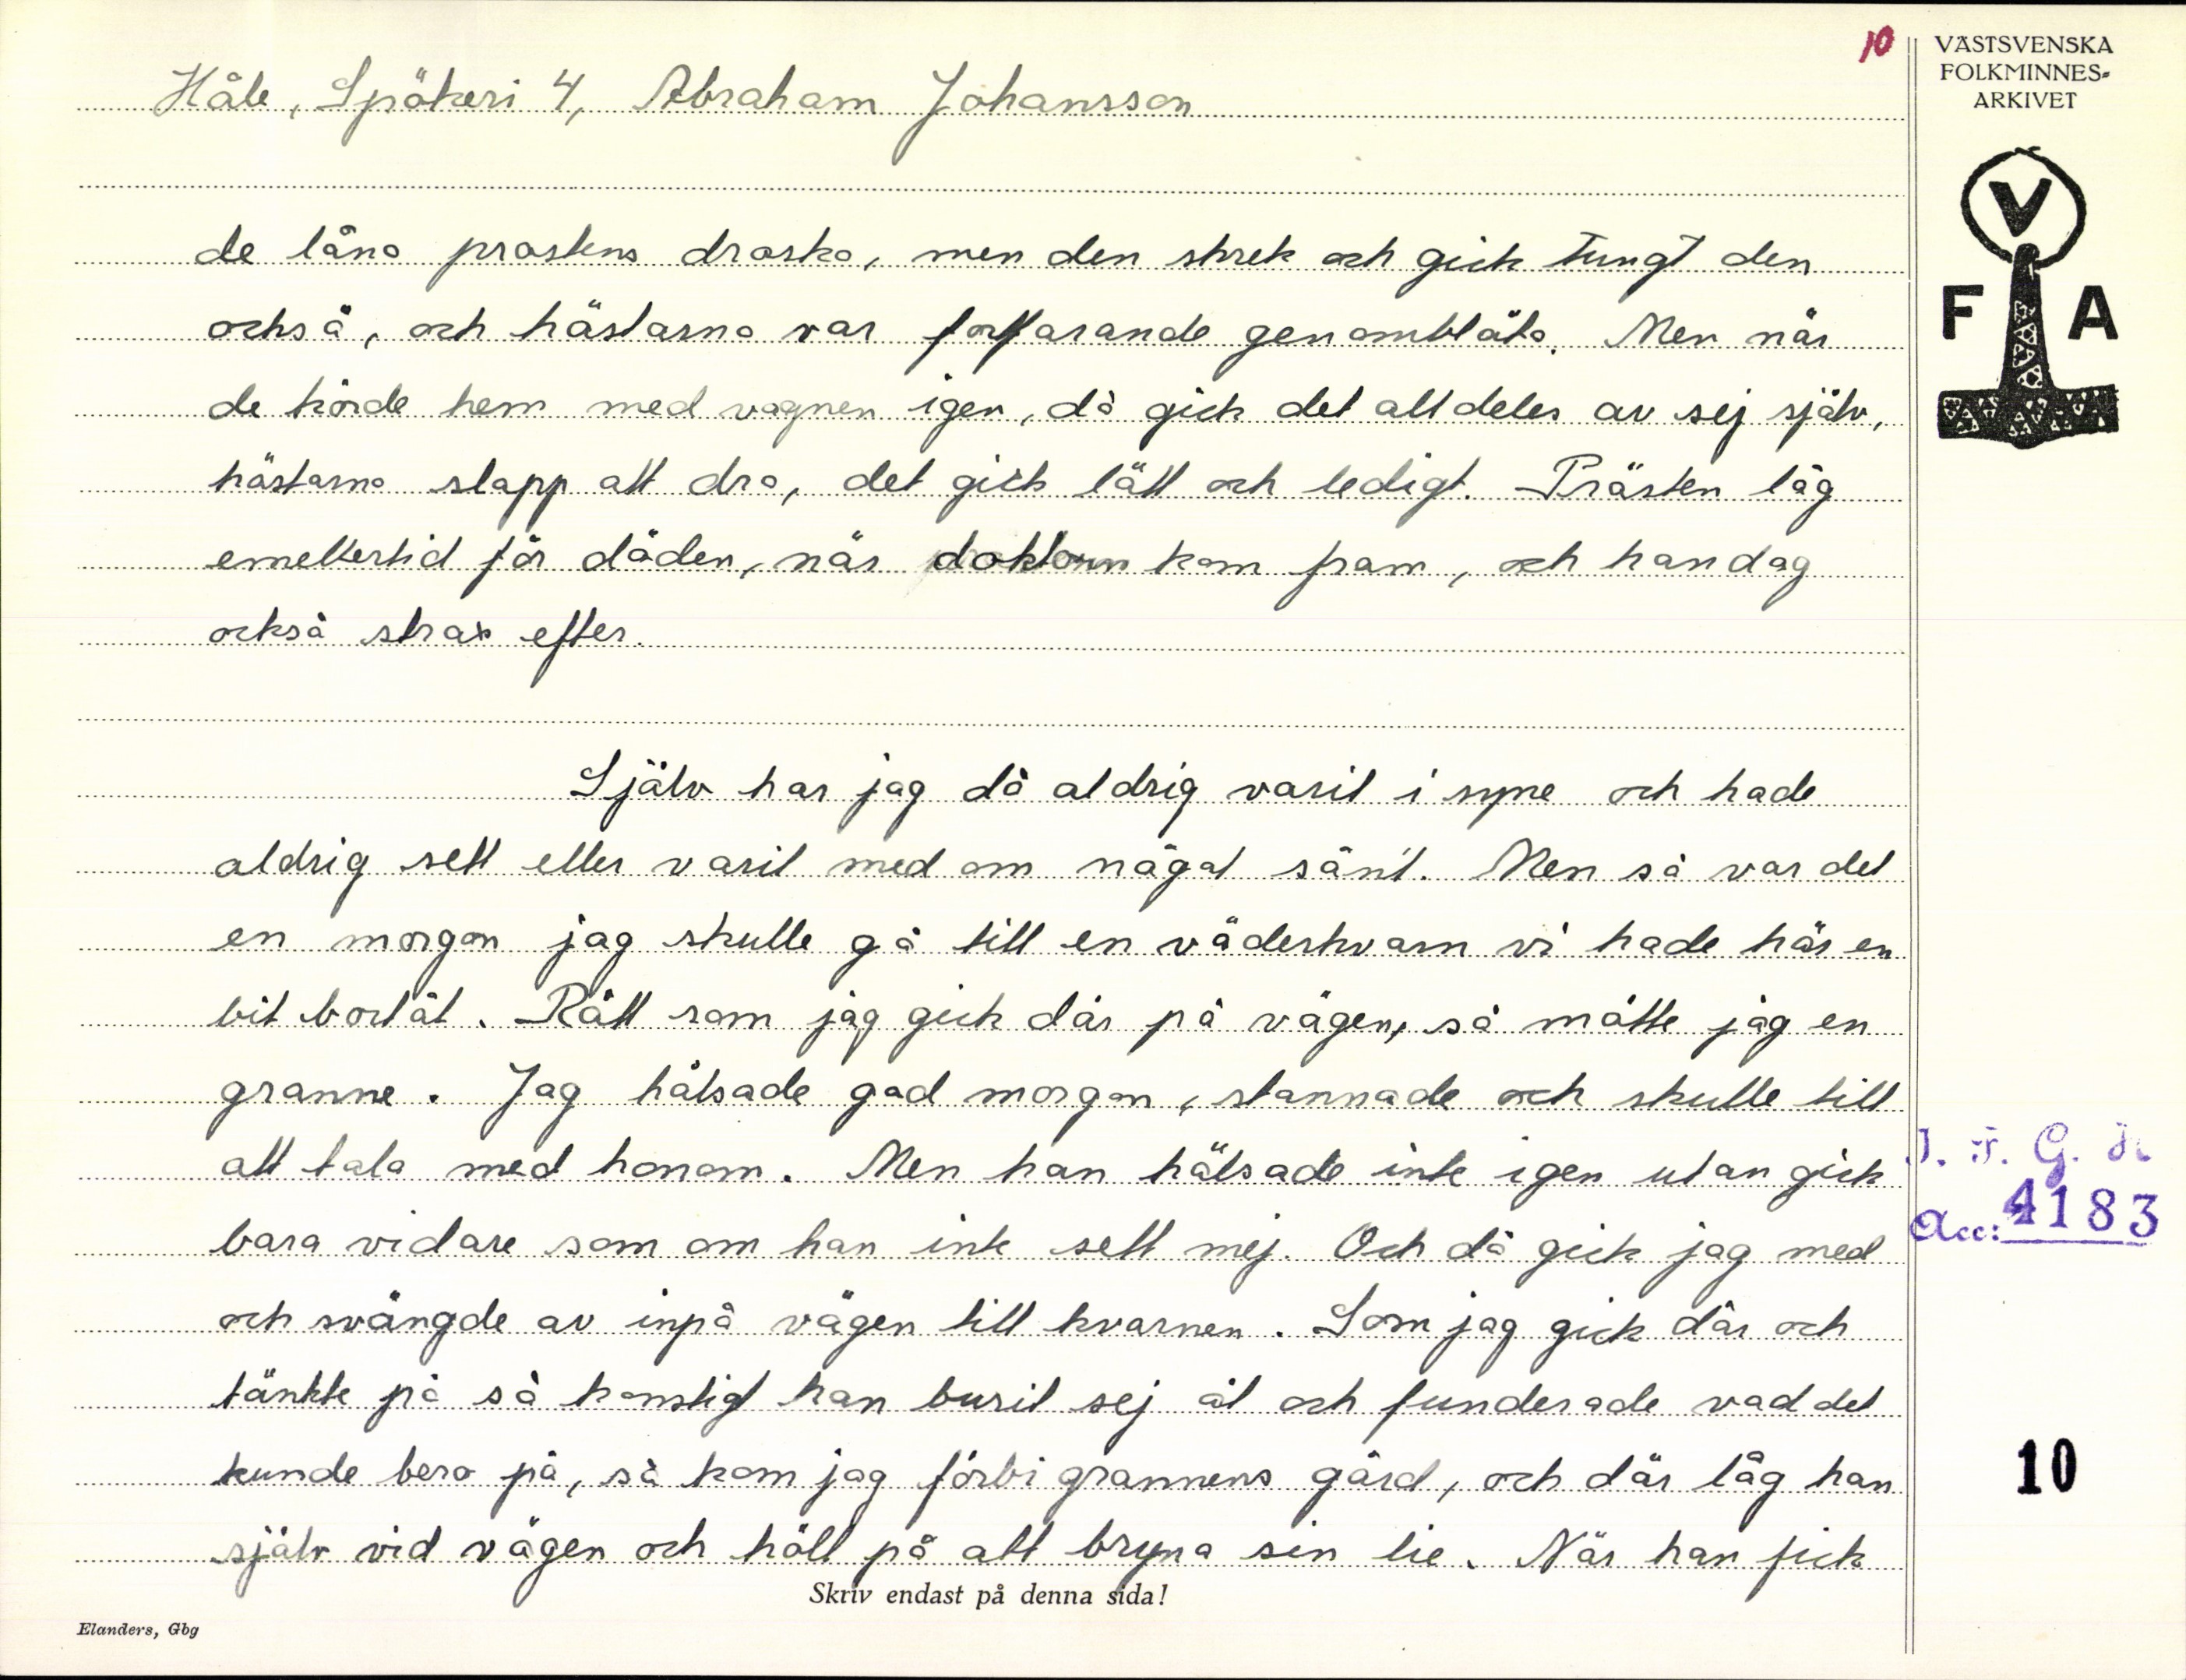 10
VÄSTSVENSKA
FOLKMINNES-
ARKIVET
Håle, Spökeri 4, Abraham Johansson
V
F A
de låna prostens droska, men den skrek och gick tungt den
också, och hästarna var fortfarande genomblöta. Men när
de körde hem med vagnen igen, då gick det alldeles av sej själv,
hästarna slapp att dra, det gick lätt och ledigt. Prästen låg
emellertid för döden, när doktorn kom fram, och han dog
också strax efter.
Själv har jag då aldrig varit i syne och hade
aldrig sett eller varit med om något sånt. Men så var det
en morgon jag skulle gå till en väderkvarn vi hade här en
bit bortåt. Rätt som jag gick där på vägen, så mötte jag en
granne. Jag hälsade god morgon, stannade och skulle till
att tala med honom. Men han hälsade inte igen utan gick
bara vidare som om han inte sett mej. Och då gick jag med
och svängde av inpå vägen till kvarnen. Som jag gick där och
tänkte på så konstigt han burit sej åt och funderade vad det
kunde bero på, så kom jag förbi grannens gård, och där låg han
själv vid vägen och höll på att bryna sin lie. När han fick
I. F. G. H.
Acc: 4183
10
Skriv endast på denna sida!
Elanders, Gbg